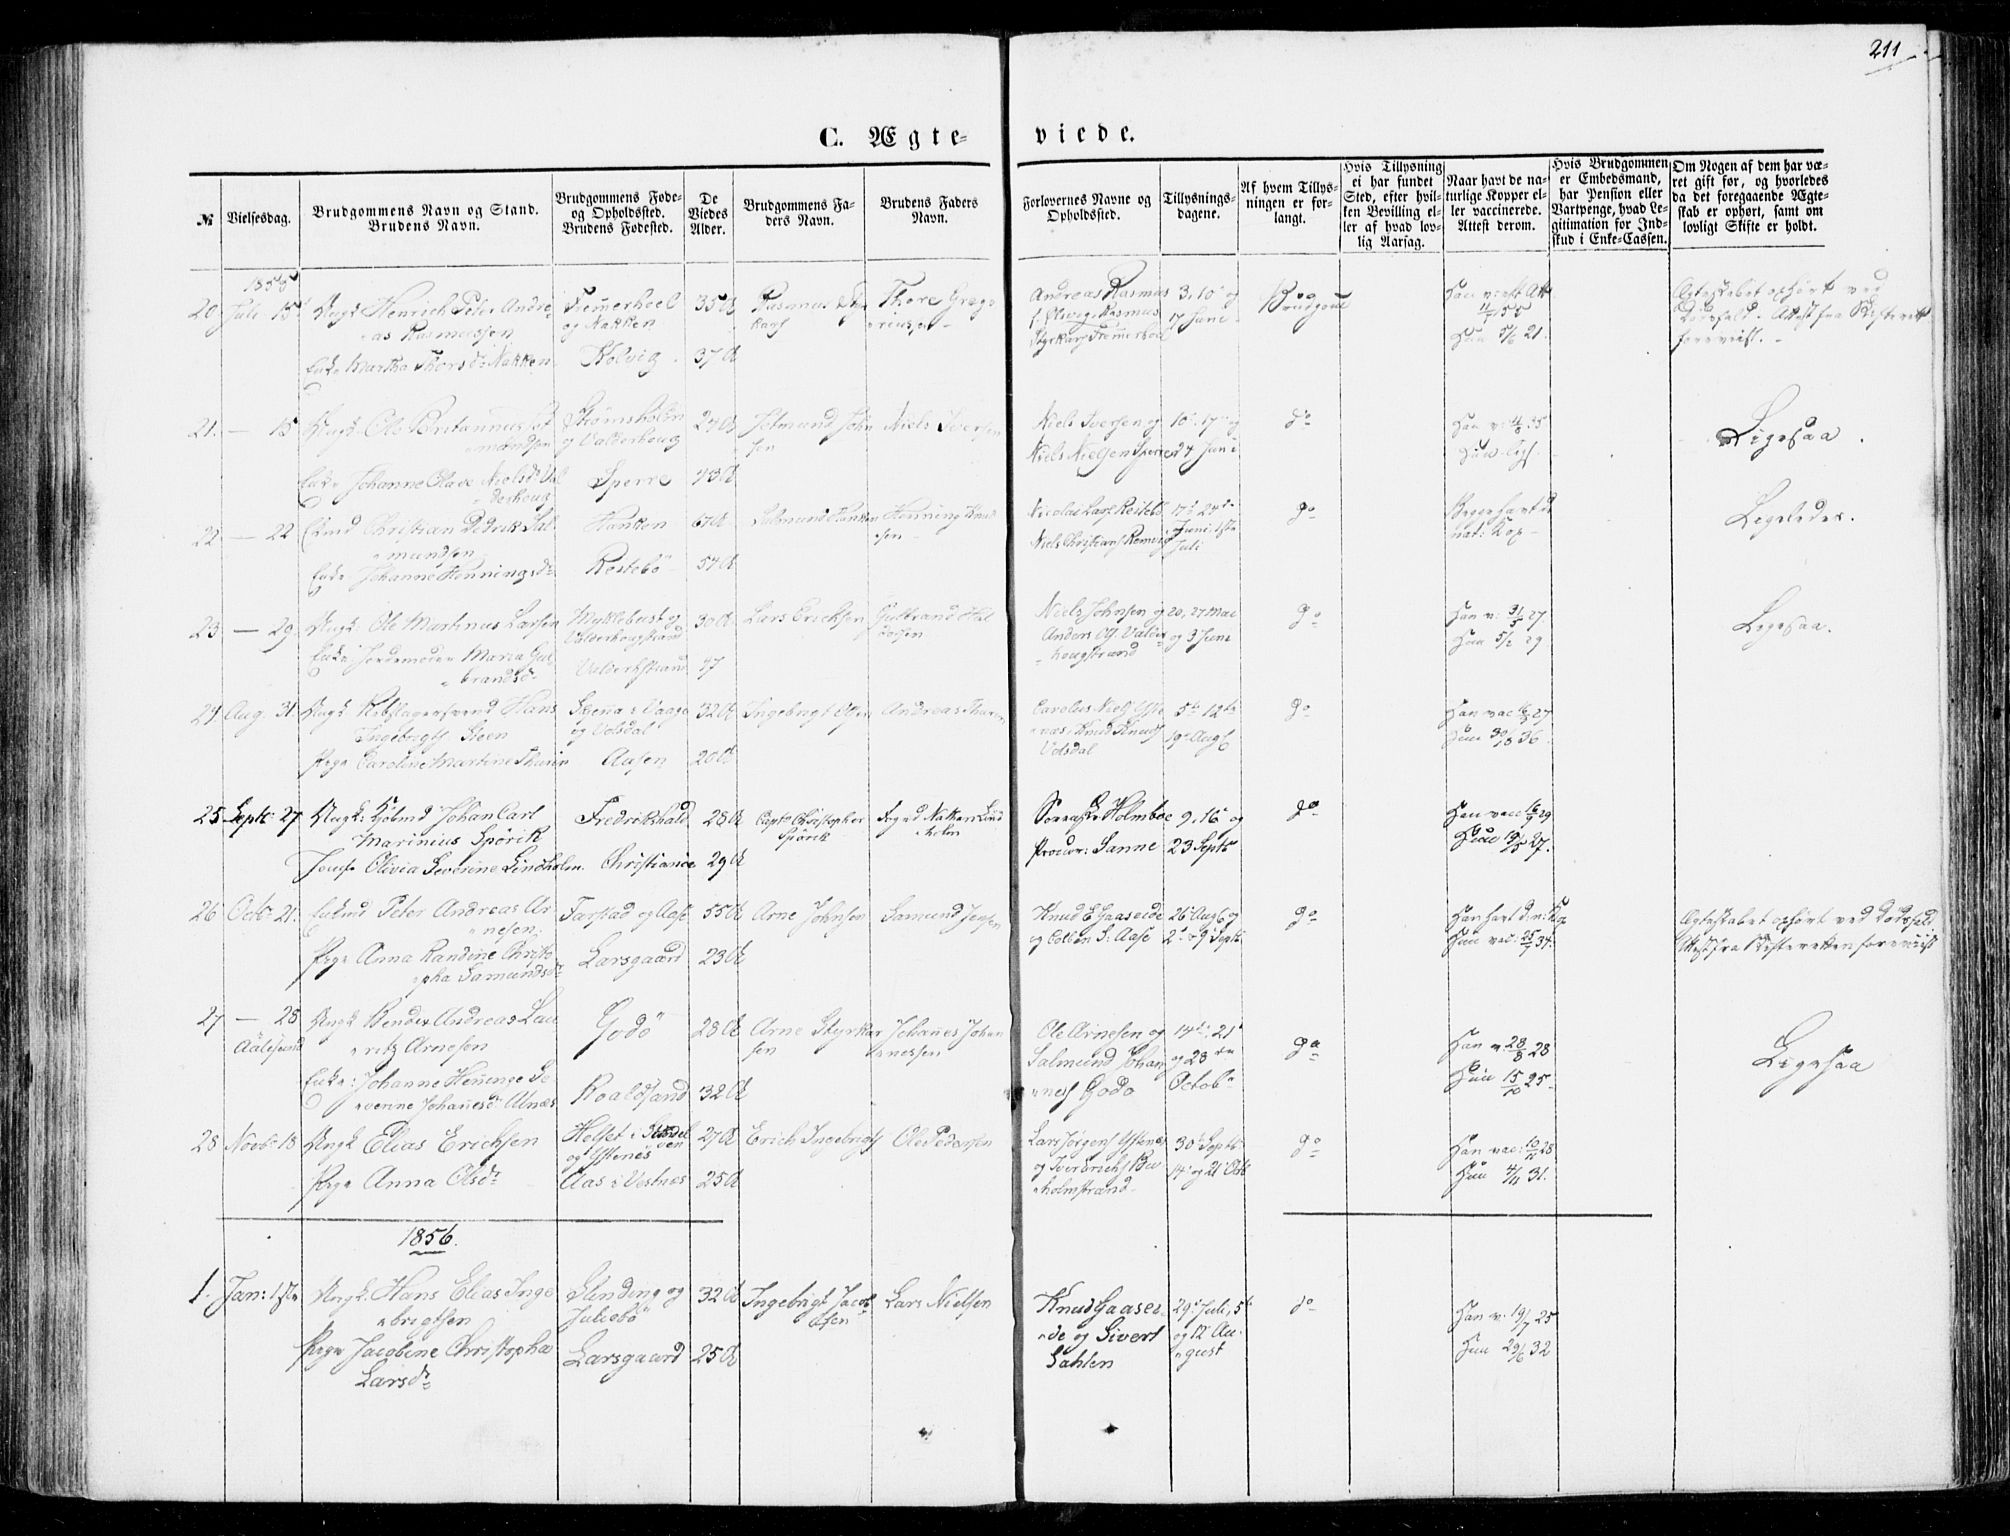 211
C. Ægte-viede.
№
Vielsesdag.
Brudgommens Navn og Stand.
Brudens Navn.
Brudgommens Føde-
og Opholdssted.
Brudens Fødested.
De
Viedes
Alder.
Brudgommens Fa-
ders Navn.
Brudens Faders
Navn.
Forlovernes Navne og
Opholdssted.
Tillysnings-
dagene.
Af hvem Tillys-
ningen er for-
langt.
Hvis Tillysning
ei har fundet
Sted, efter hvil-
ken Bevilling el-
ler af hvad lov-
lig Aarsag.
Naar havt de na-
turlige Kopper el-
ler vaccinerede.
Attest derom.
Hvis Brudgommen
er Embedsmand,
har Pension eller
Vartpenge, hvad Le-
gitimation for Ind-
skud i Enke-Cassen.
Om Nogen af dem har væ-
ret gift før, og hvorledes
da det foregaaende Ægte-
skab er ophørt, samt om
lovligt Skifte er holdt.
1855
20 Juli 15 Ungk. Henrich Peter Andre
as Rasmussen
Enke Martha Thorsdr Nakken
og Nakken
Kolvig
35 A
37 A
Rasmus
Thore Grego
riussen
Andreas Rasmus
3, 10 og
17 Juni
Brudgom
Ægteskabet ophørt ved
Dødsfald. Attest fra Skifterett
foreviist.
21. — 15 Ungk. Ole Britannus Jet
mundsen
Enke Johanne Olave Nielsdr Val
derhoug
Strømsholm
og Valderhoug
Sperre
24 A
43 A
Jetmund John
sen
Niels Iversen
Niels Iversen og
Niels Nielsen Sperre
10, 17 og
24 Juni
do
Ligesaa.
22 — 22 Enkmd Christian Didrik Sal
mundsen
Enke Johanne Henningsdr
Hanken
Restebö
67 A
54 A
Salmund Hanken
Henning Knud
sen
Nicolai Lars Restebö
Niels Christians Remvig
17 24de
Juni 1ste
Juli
do
Begge havt d
nat: Kop
Ligeledes.
23 — 29. Ungk. Ole Martinus Larsen
Enke Jordemoder Maria Gul
brandsdr
Myklebust og
Valderhougstrand
Valderhstrand
30 A
47
Lars Ericksen
Gulbrand Hal
Niels Johnsen og
Anders Valder
hougstrand
20, 27 Mai
og 3 Juni
do
Han v: 31/5 27
Hun 5/2 29
Ligesaa.
24 Aug. 31. Ungk. Rebslagersvend Hans
Ingebrigts Steen
Pige Caroline Martine Thurin
og Volsdal
Aasen
32 A
20 A
Ingebrigt Olsen
Andreas Thurin
Carolus Niels
Knud Knuds
Volsdal
5te 12te
19 Aug
do
25 Septbr 27 Ungk: Kjöbmd Johan Carl
Marinius Spörck
Jomfr Olivia Severine Lindholm.
Fredrikshald
Christiania
28 A
29 A
Capt. Christopher
Spörck
Foged Nathan Lind
holm
Holmboe
Procur: Sanne
9, 16 og
23 Septbr
do
Han vacc 16/9 29
26 Octbr 21. Enkmd Peter Andreas Ar
nesen,
Pige Anna Randine Christo
pha Samundsdr
Farstad og Aase
Larsgaard
55 A
23 A
Arne Johnsen
Samund Jensen
Knud E Gaaseide
og Colben S: Aase
26 Aug og
2 & 9 Septb
do
Han havt d: n: Kop
Hun vac: 25/7 34.
Ægteskabet ophørt ved Dødsfald
Attest fra Skifteretten foreviist
27 — 28
Aalesund
Ungk Bendix Andreas Lau
ritz Arnesen
Enke: Johanne Henninge Se
verine Johanesdr Alnæs
Godö
Roaldsand
28 A
32 A
Arne Styrkar
sen
Johanes Johan
nessen
Ole Arnesen og
Salmund Johan
nes Godö
14de 21
og 28de
Octobr
do
Han v: 28/8 28
Hun 15/10 25
Ligesaa
28 Novbr 18 Ungk Elias Erichsen
Pige Anna Olsdr
og Ystenes
Aas i Vestnes
27 A
25 A
Erich Ingebrigts
Ole Pedersen
Lars Jørgens Ystenes
og Iver Erichs Bu
holmstrand
30 Septb
14 og 21 Octb
do
Han vac: 10/11 28
Hun 4/11 31.
1856.
1. Jan: 1ste Ungk. Hans Elias Inge
brigtsen
Pige Jacobine Christopha
Larsdr
Slinding og
Juliebö
Larsgaard
32 A
25 A
Ingebrigt Jacob
sen
Lars Nielsen
Knud Gaasei
de og Sivert
Dahlen
29 Juli, 5te
og 12 Au
gust
do
Han v: 19/7 25
Hun 29/6 32